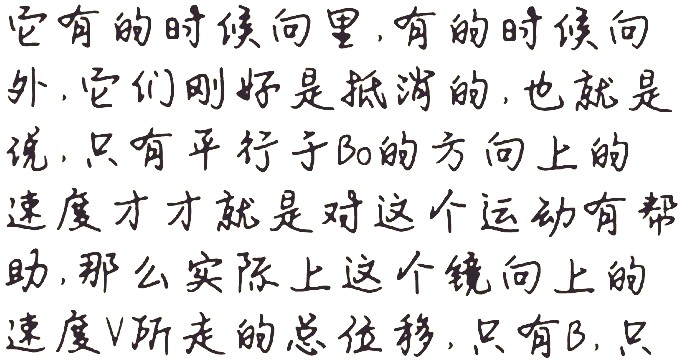 它有的时候向里,有的时候向
外,它们刚好是抵消的,也就是
说,只有平行于Bo的方向上的
速度才才就是对这个运动有帮
助,那么实际上这个镜向上的
速度V所走的总位移,只有B,只